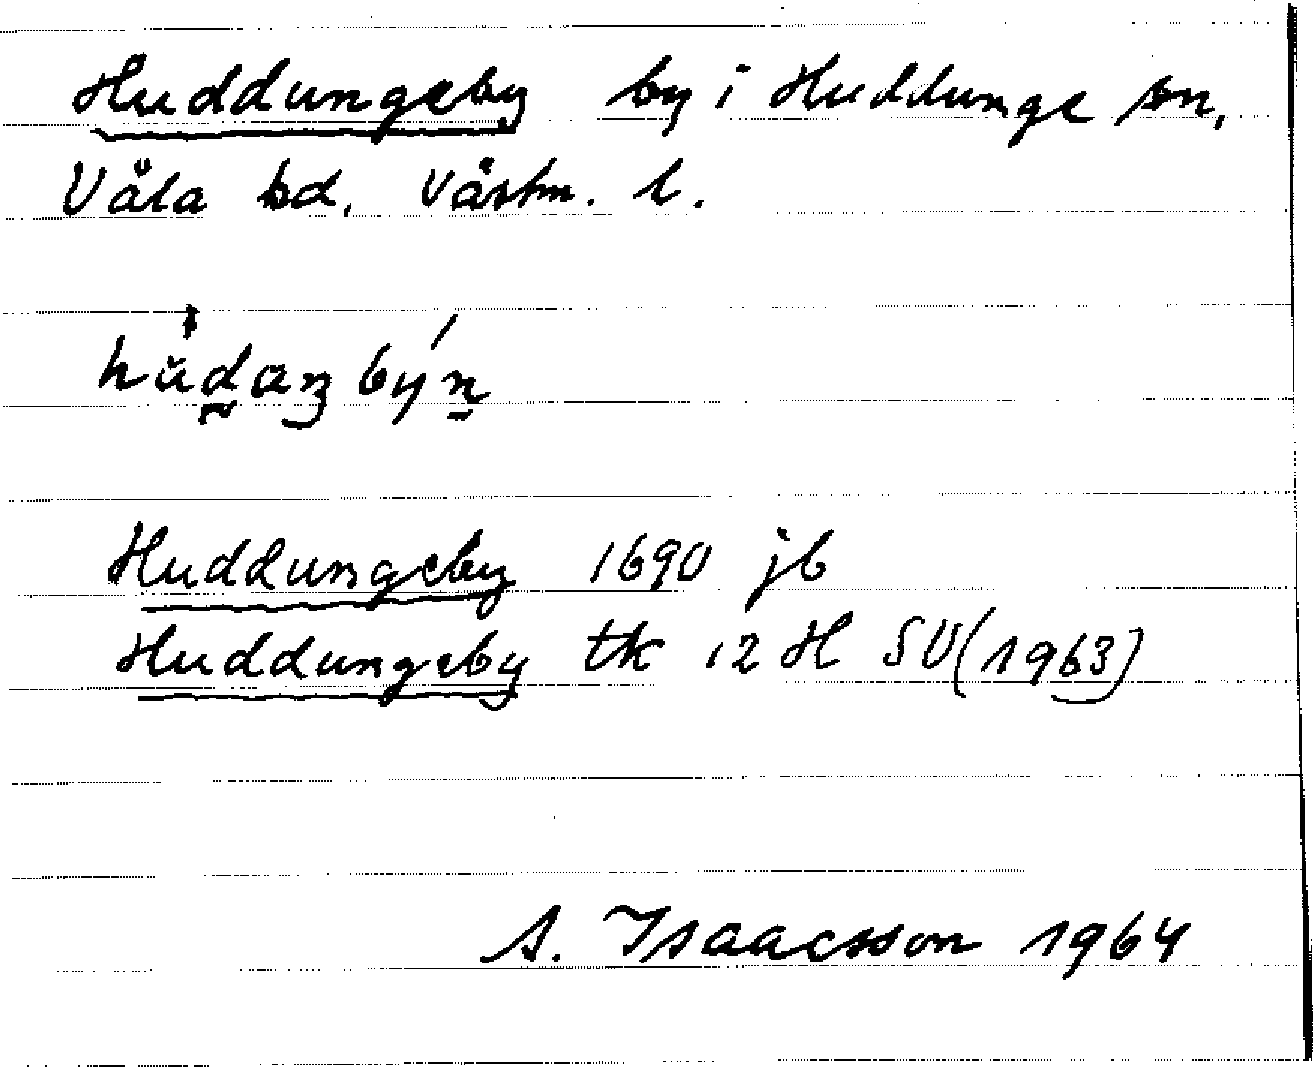 Huddungeby by i Huddunge sn,
Våla hd. Västm. l.
hùdaŋbýn
Huddungeby 1690 jb
Huddungeby tk 12 H SV (1963)
A. Isaacsson 1964